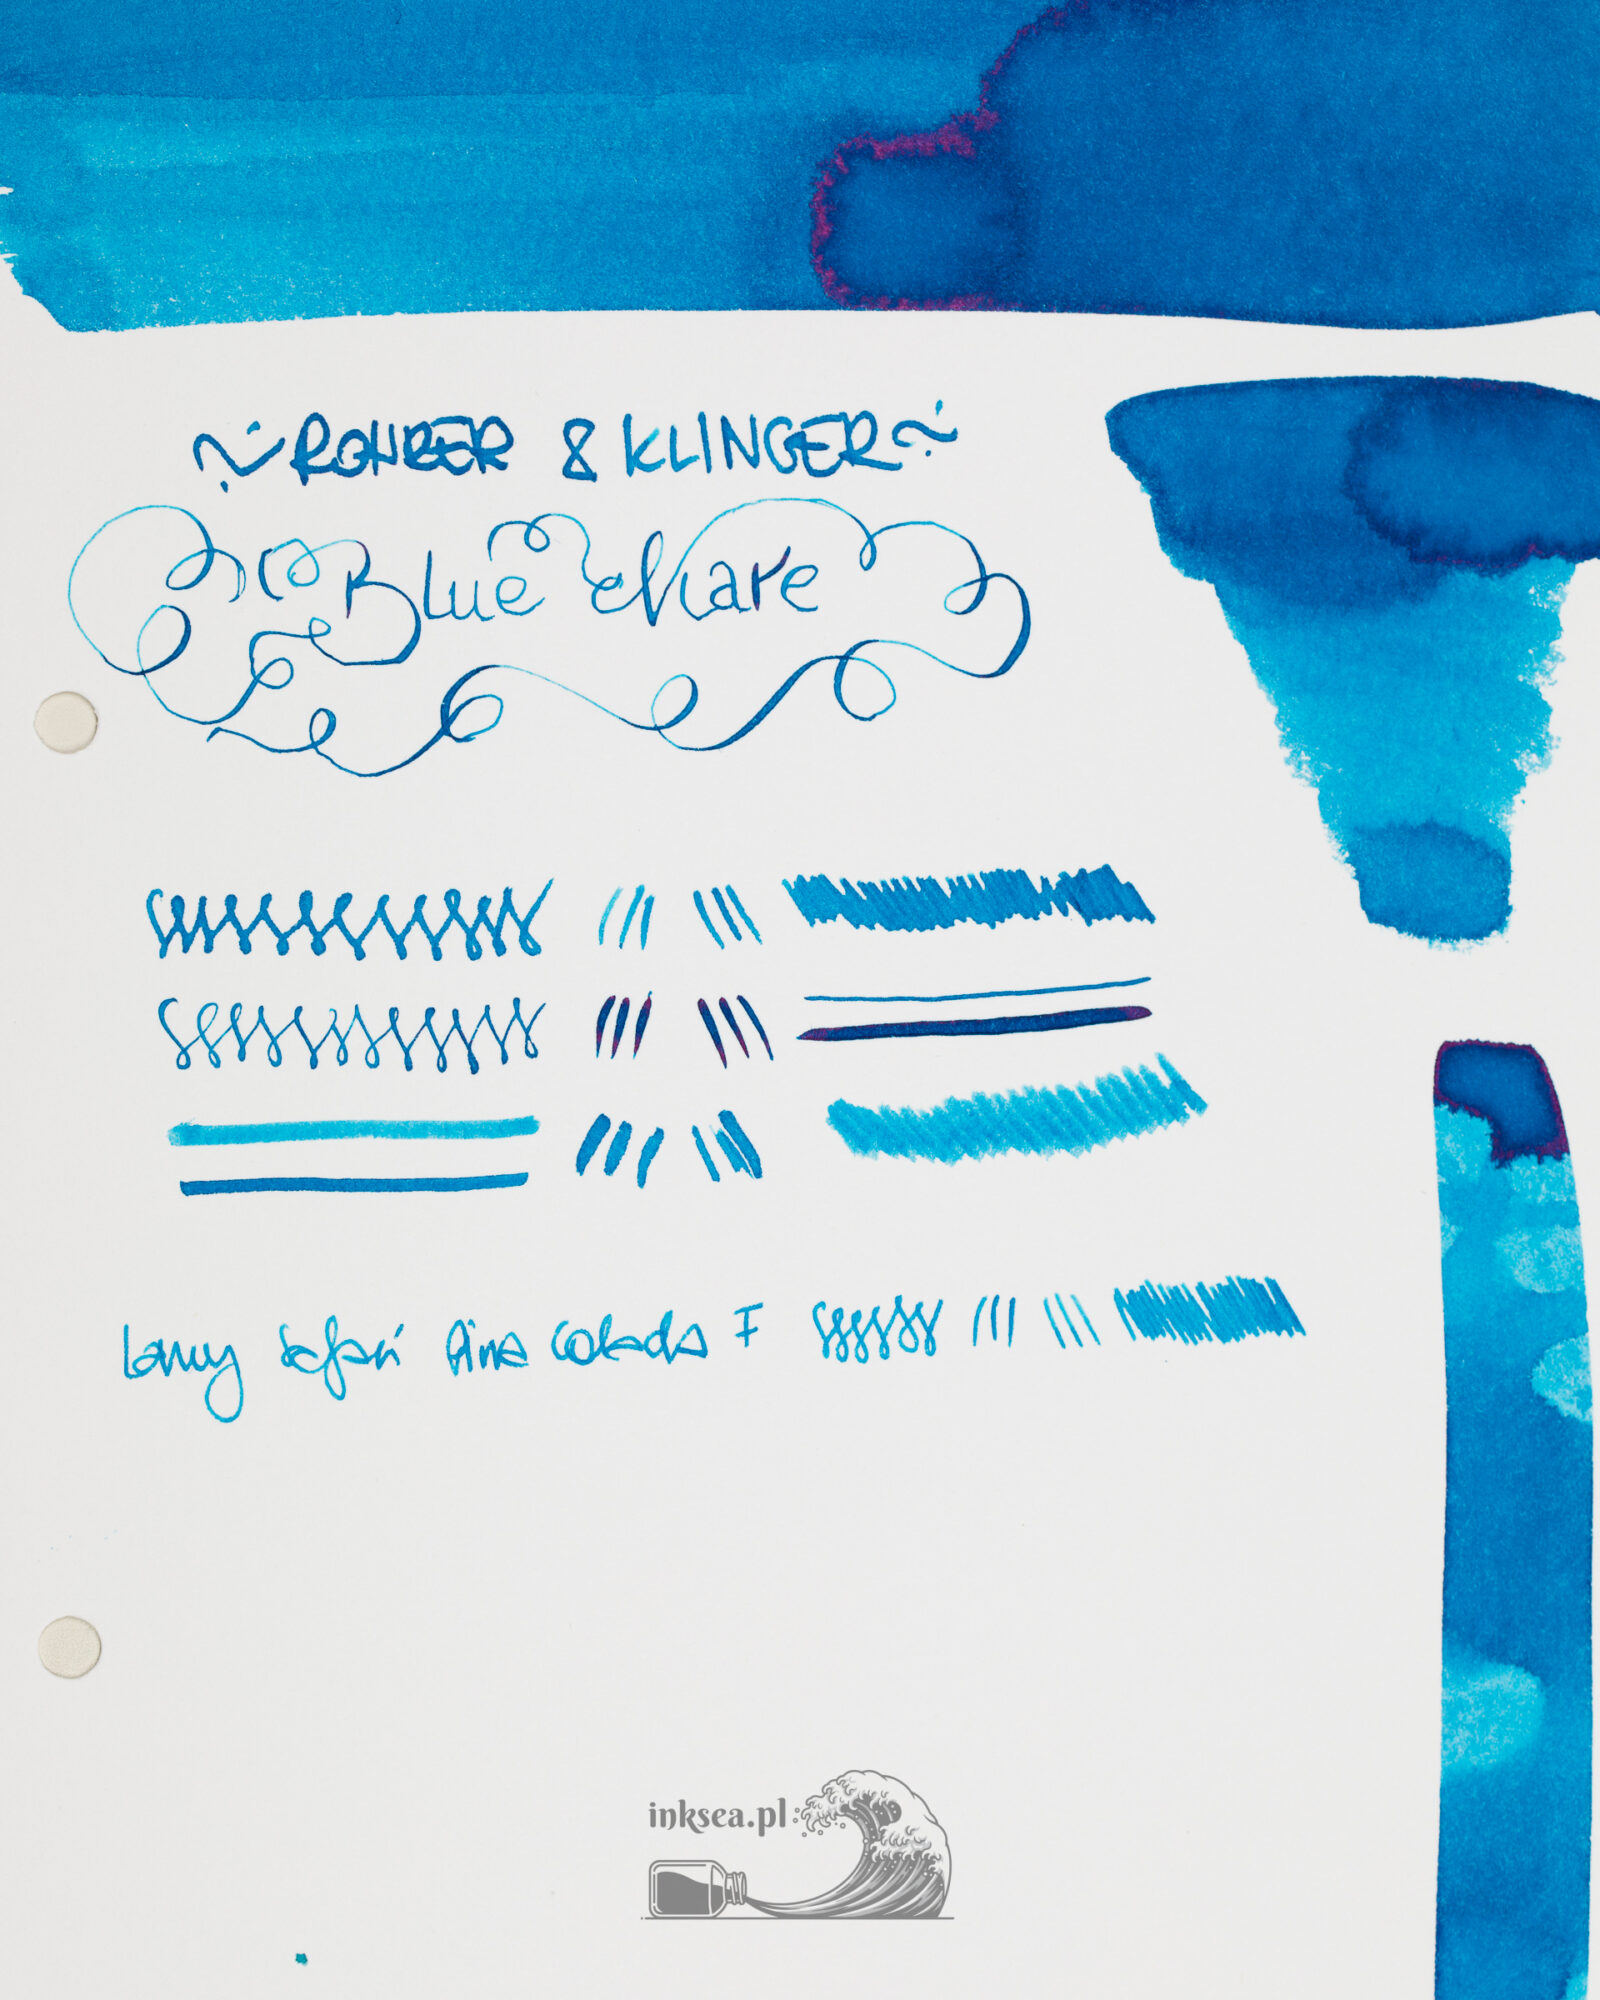 ~ROHRER & KLINGER~
Blue Mare
Lamy Safari Pina Colada F
inksea.pl